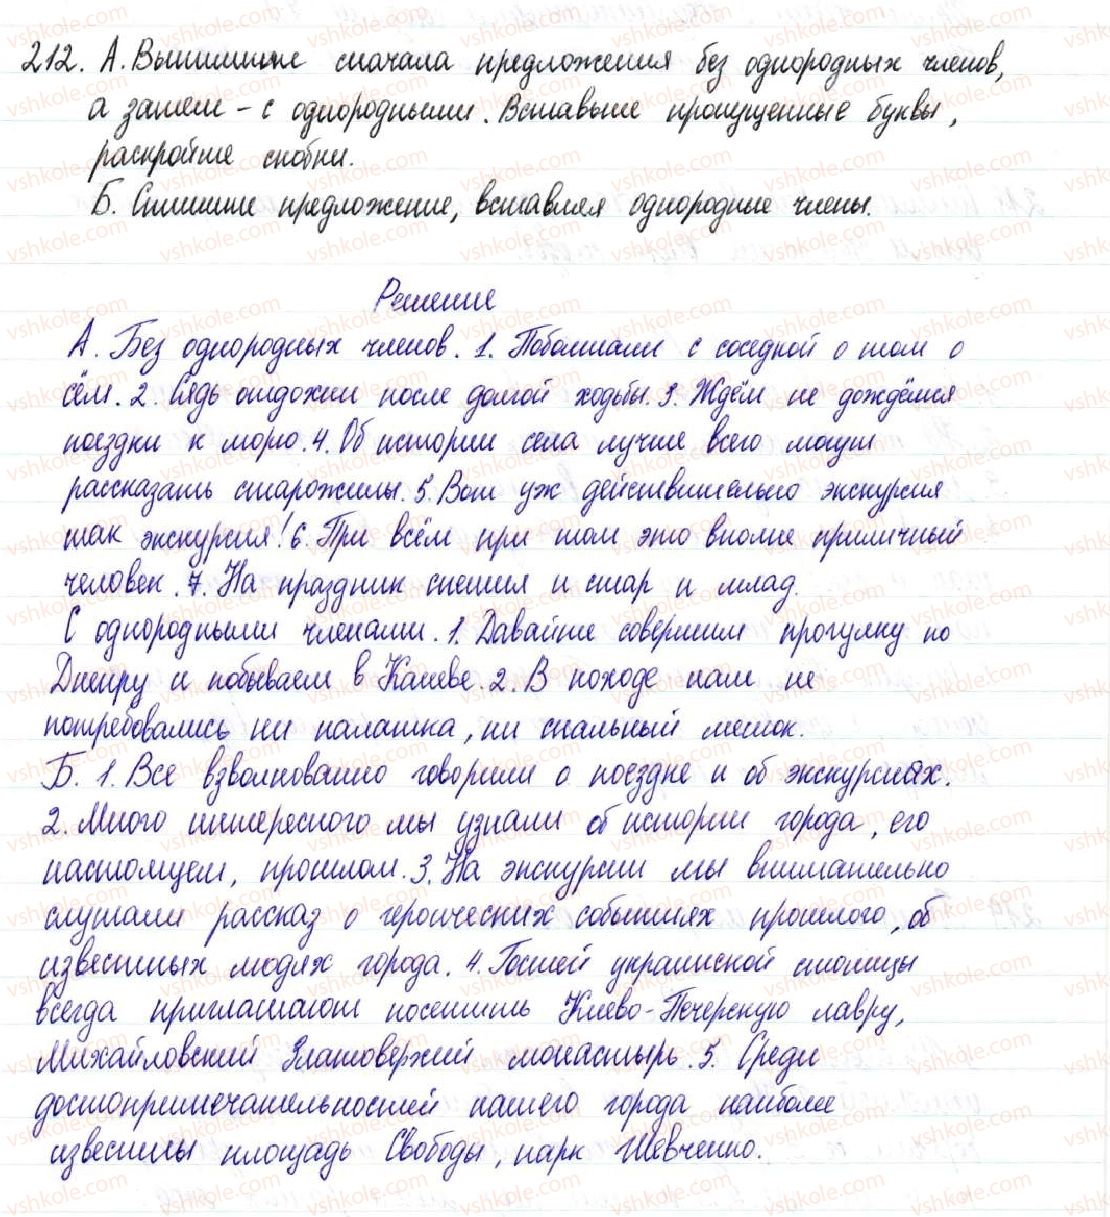 212. А. Выпишите сначала предложения без однородных членов,
а затем – с однородными. Вставьте пропущенные буквы,
раскройте скобки.
Б. Спишите предложение, вставляя однородные члены.
Решение
А. Без однородных членов. 1. Поболтали с соседкой о том о
сём. 2. Сядь отдохни после долгой ходьбы. 3. Ждём не дождёмся
поездки к морю. 4. Об истории села лучше всего могут
рассказать старожилы. 5. Вот уж действительно экскурсия
так экскурсия! 6. При всём при том это вполне приличный
человек. 7. На праздник спешил и стар и млад.
С однородными членами. 1. Давайте совершим прогулку по
Днепру и побываем в Каневе. 2. В походе нам не
потребовались ни палатка, ни спальный мешок.
Б. 1. Все взволнованно говорили о поездке и об экскурсиях.
2. Много интересного мы узнали об истории города, его
настоящем, прошлом. 3. На экскурсии мы внимательно
слушали рассказ о героических событиях прошлого, об
известных людях города. 4. Гостей украинской столицы
всегда приглашают посетить Киево-Печерскую лавру,
Михайловский Златоверхий монастырь. 5. Среди
достопримечательностей нашего города наиболее
известны площадь Свободы, парк Шевченко.